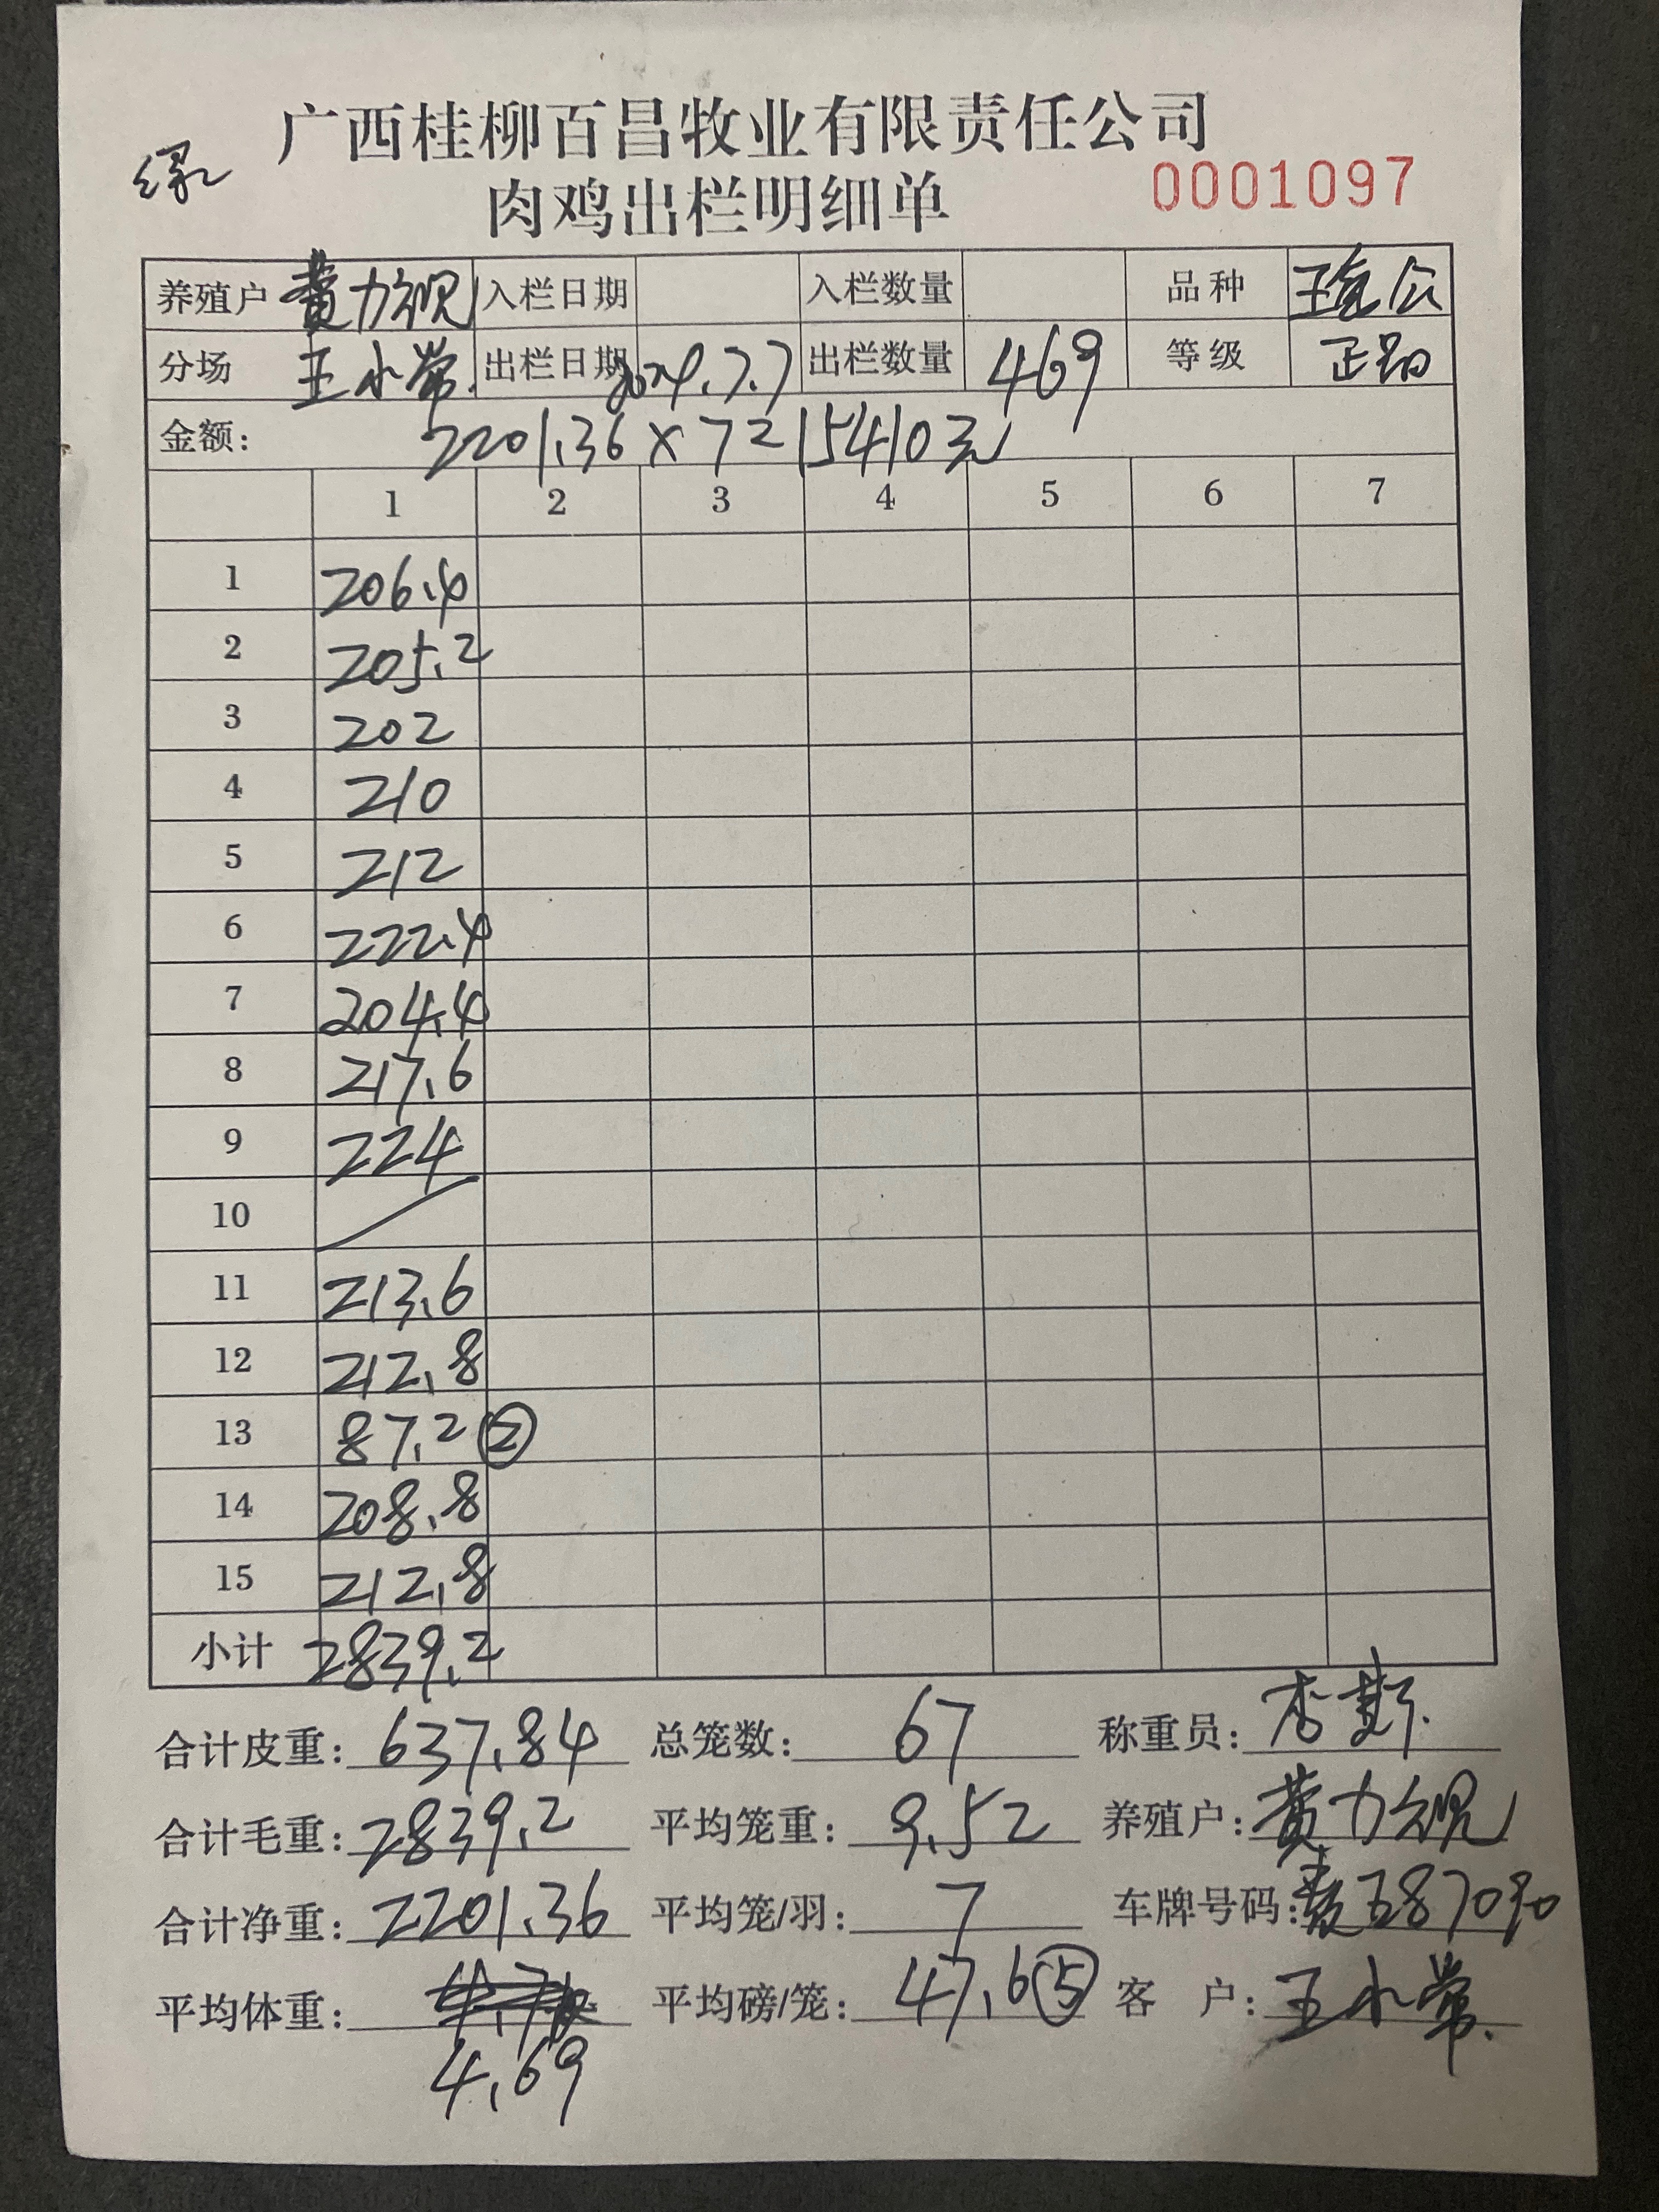 绿
广西桂柳百昌牧业有限责任公司
肉鸡出栏明细单
0001097
养殖户 黄力 入栏日期 入栏数量 品种
分场 王小常 出栏日期 2024.7.7 出栏数量 469 等级
金额: 2201.36×7=15410元
1 2 3 4 5 6 7
1 206.4
2 205.2
3 202
4 210
5 212
6 222.4
7 204.4
8 217.6
9 224
10
11 213.6
12 212.8
13 87.2 ②
14 208.8
15 212.8
小计 2839.2
合计皮重: 637.84 总笼数: 67 称重员:
合计毛重: 2839.2 平均笼重: 9.52 养殖户: 黄力
合计净重: 2201.36 平均笼/羽: 7 车牌号码:
平均体重: 平均磅/笼: 47.6 ⑤ 客 户: 王小常
4.69